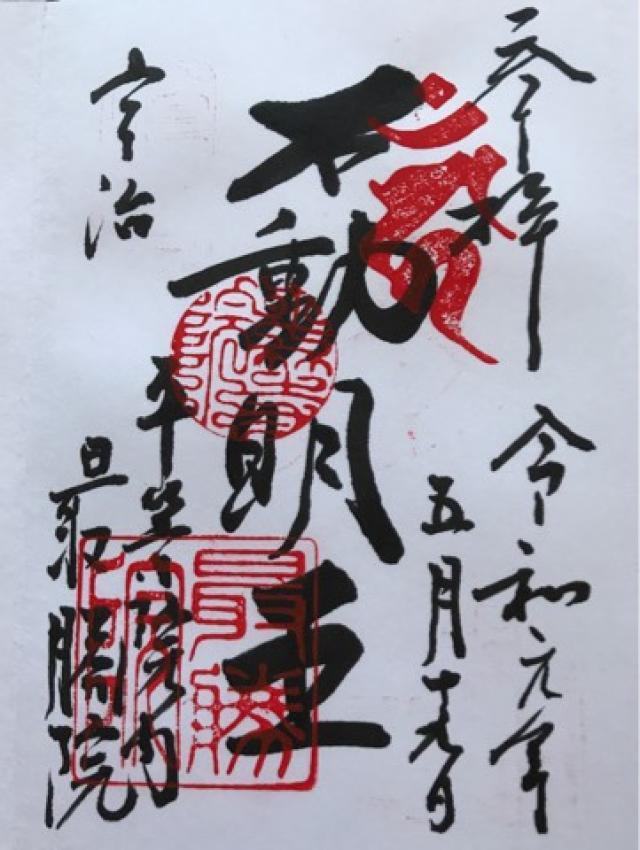 参拝
令和元年
五月十九日
不動明王
宇治
平等院内
最勝院
最勝院印